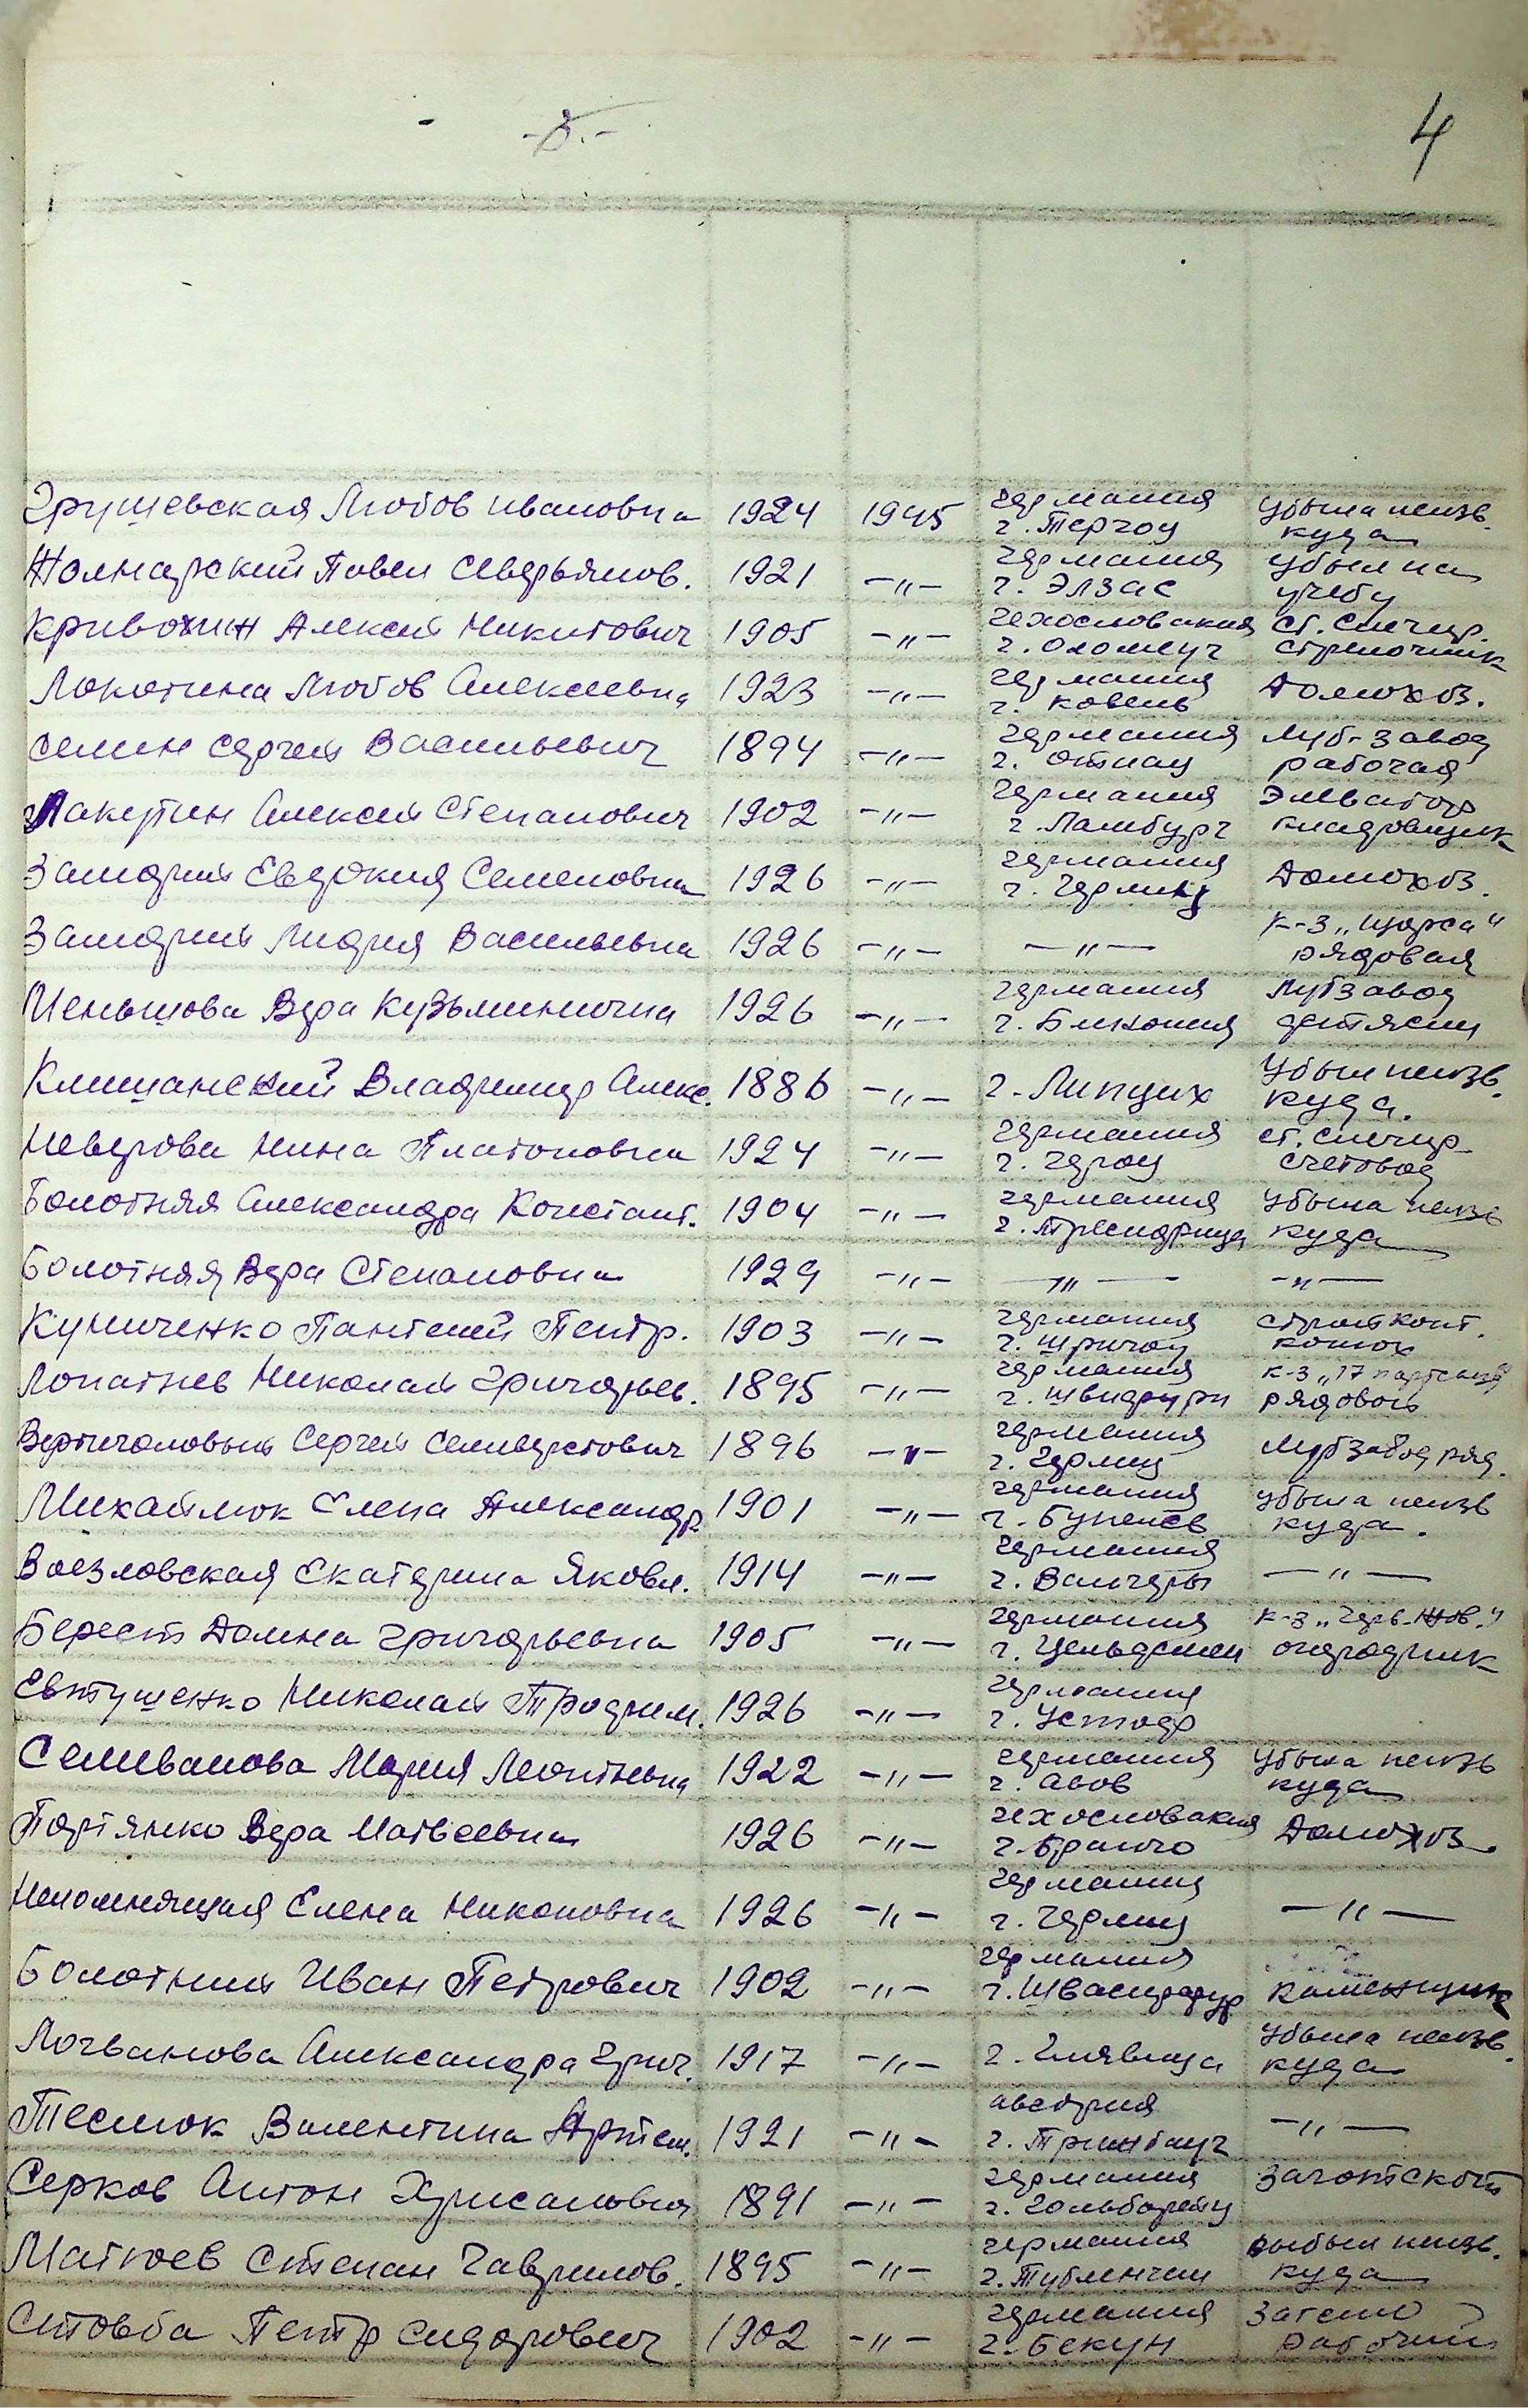 4
Грушевская Любов Ивановна 1924 1945 Германия г. Тергоу Убыла неизв. куда
Жолнарский Павел Северьянов. 1921 -„- Германия г. Элзас убыл на учебу
Кривохин Алексей Никитович 1905 -„- Чехословакия г. Оломеуг ст. Снегир. стрелочник
Локотина Любов Алексеевна 1923 -„- Германия г. Ковень Домохоз.
Семин Сергей Васильевич 1894 -„- Германия г. Отнау Луб-завод рабочая
Лакутин Алексей Степанович 1902 -„- Германия г. Ламбург Элватор кладовщик
Заиорний Евдокия Семеновна 1926 -„- Германия г. Герлиц Домохоз.
Заиорний Лидия Васильевна 1926 -„- -„- к-з „Щорса" рядовая
Меньшова Вера Кузьминична 1926 -„- Германия г. Бикония Лубзавод детясли
Клишанский Владимир Алекс. 1886 -„- г. Липцих Убыл неизв. куда.
Неверова Нина Платоновна 1924 -„- Германия г. Гароу ст. Снегир. счетовод
Болотняя Александра Констант. 1904 -„- Германия Убыла неизв куда
Болотняя Вера Степановна 1929 -„- -„- -„-
Куниченко Пантелей Петр. 1903 -„- Германия г. Шригоу стройконт. конюх
Лопатнев Николай Григорьев. 1895 -„- Германия г. Швидрури к-з „17 партсъезд" рядовой
Вертиголовый Сергей Селиверстович 1896 -„- Германия г. Герлиц Лубзавод ряд.
Михайлюк Елена Александр 1901 -„- Германия г. Бунелев убыла неизв куда.
Воезловская Екатерина Яковл. 1914 -„- Германия г. Валгеры -„-
Берест Домна Григорьевна 1905 -„- Германия г. Цельдемен к-з „Черв. Жов." огородник
Евтушенко Николай Трофим. 1926 -„- Германия г. Устодр
Селиванова Мария Леонтьевна 1922 -„- Германия г. Авов Убыла неизв куда
Портянко Вера Матвеевна 1926 -„- Чехословакия г. Бринго Домохоз.
Непомнящая Елена Никоновна 1926 -„- Германия г. Герлиц -„-
Болотний Иван Петрович 1902 -„- Германия г. Швасцрдур Каменщик
Логванова Александра Григ. 1917 -„- г. Глявица Убыла неизв. куда
Теслюк Валентина Артем. 1921 -„- Австрия г. Тринбауг -„-
Серков Антон Хрисанович 1891 -„- Германия г. Гольбарейц Заготскот
Матюев Степан Гаврилов. 1895 -„- Германия г. Тублинген выбыл неизв. куда
Стовба Петр Сидорович 1902 -„- Германия г. Бекун Загзерно рабочий